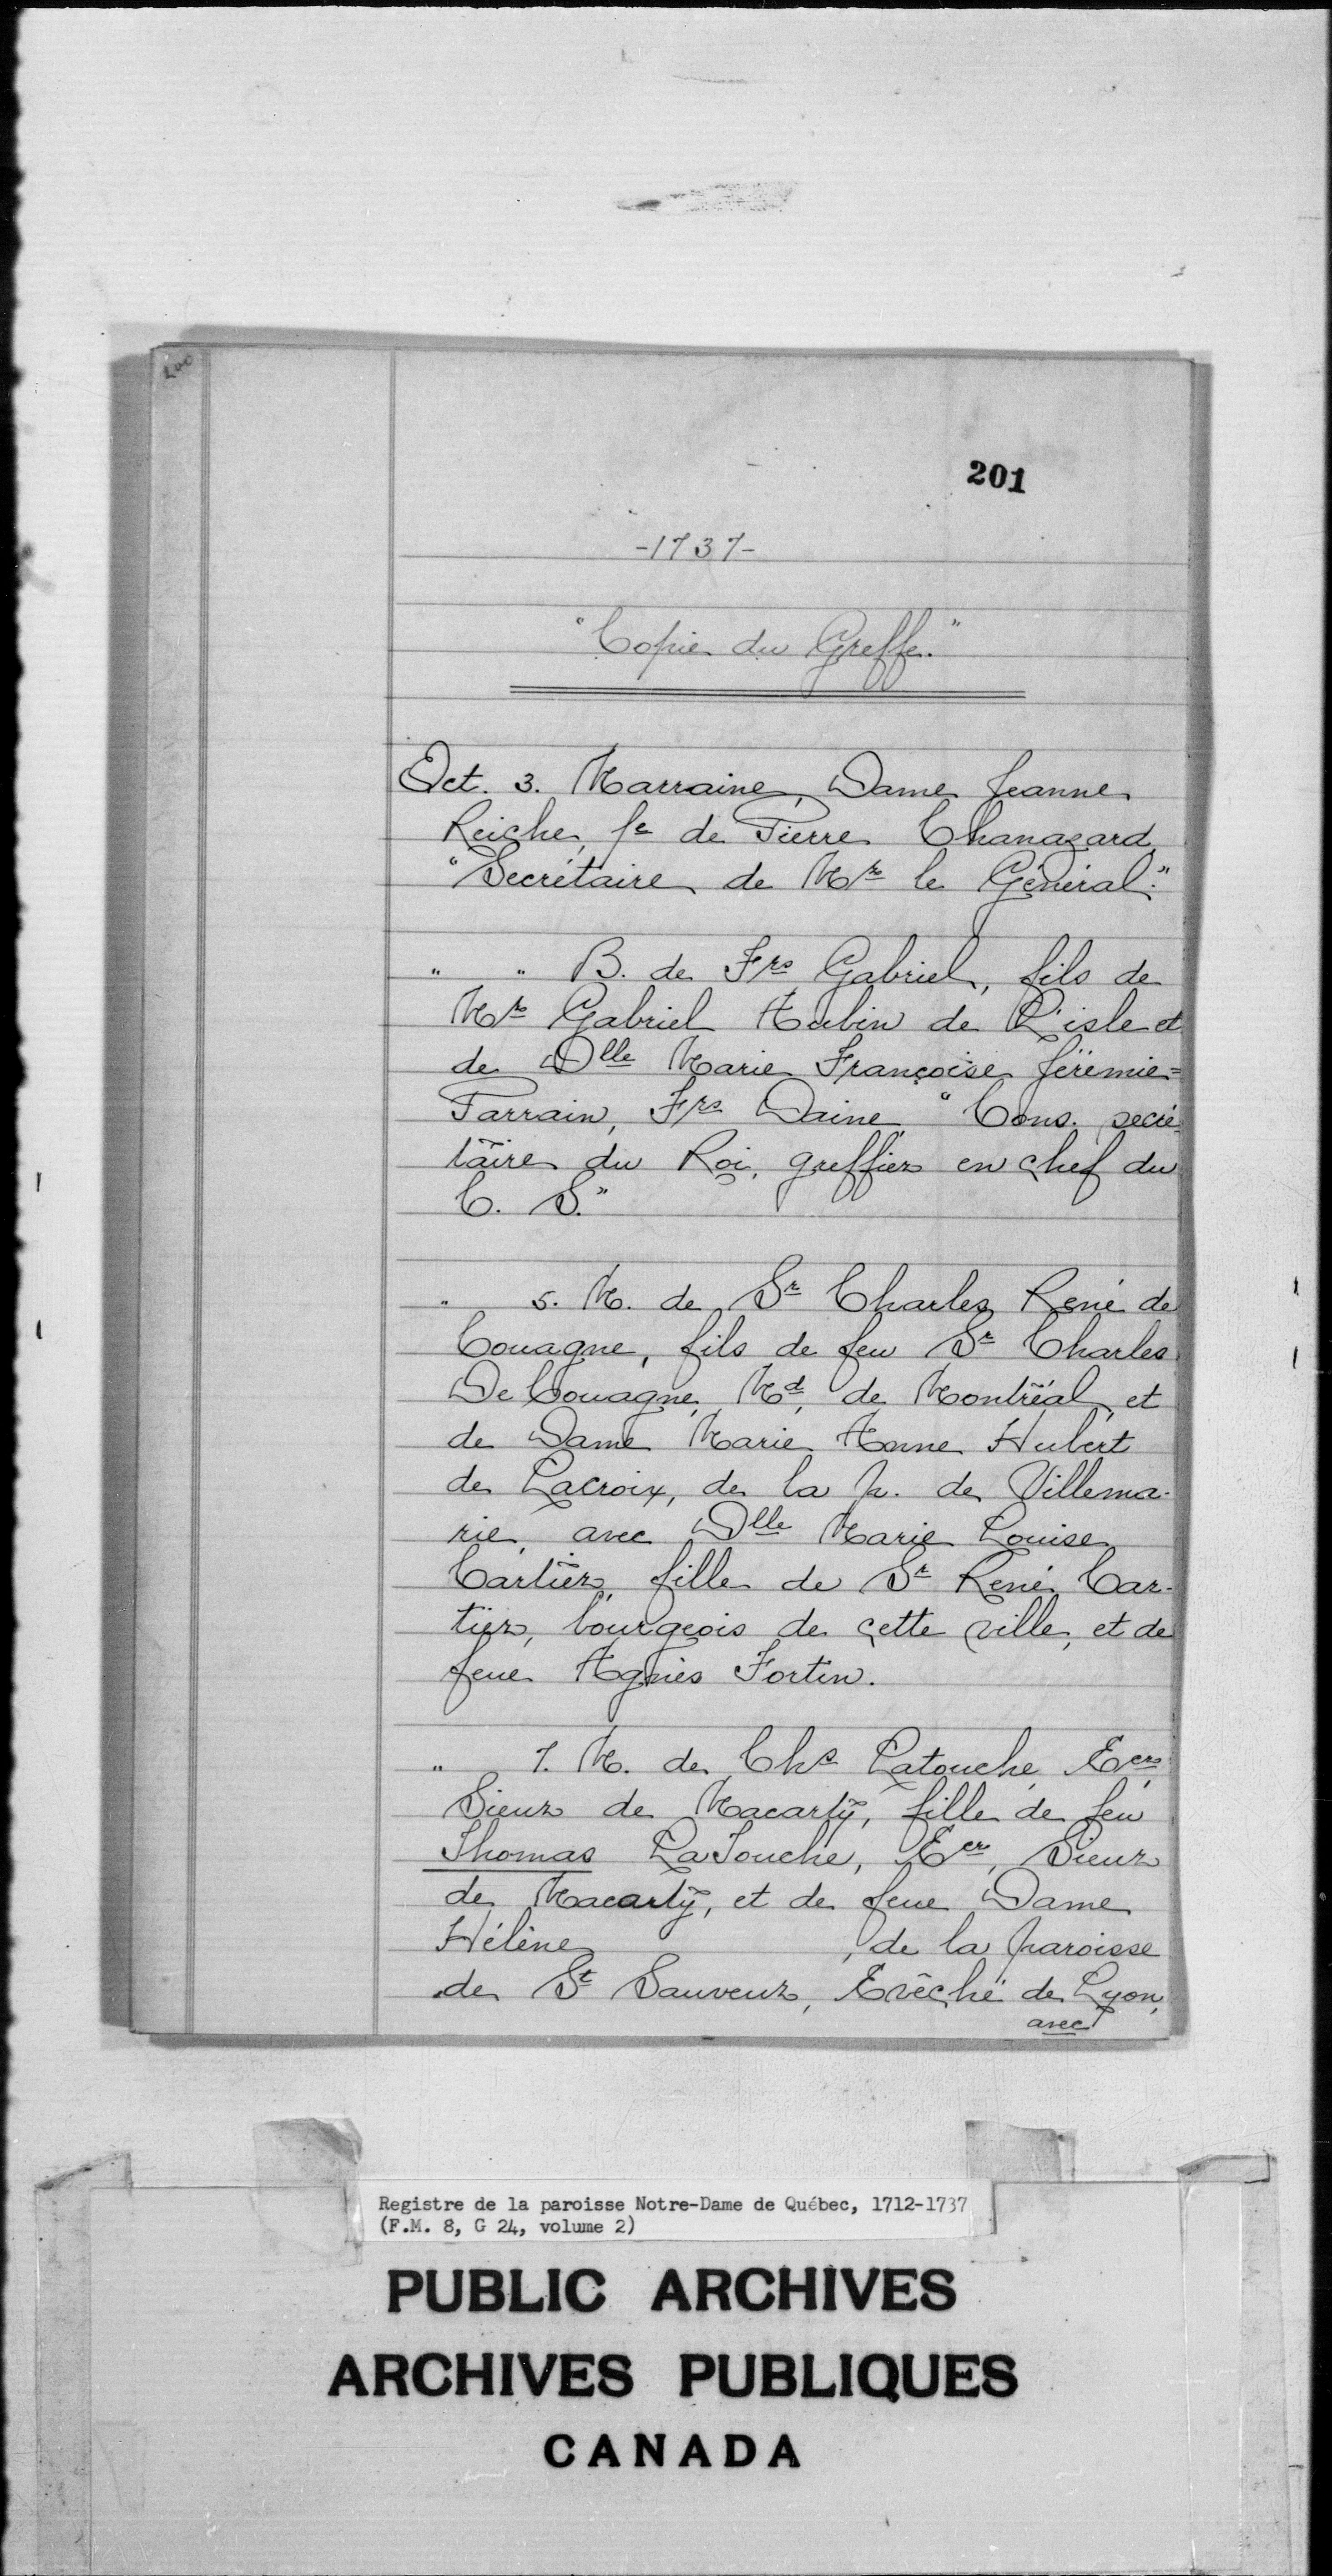 200
201
-1737-
"Copie du Greffe."
Oct. 3. Marraine, Dame Jeanne
Reiche, fe de Pierre Chanazard,
"Secrétaire de Mr le Général."
" " B. de Frs Gabriel, fils de
Mr Gabriel Aubin de L'isle et
de Dlle Marie Françoise Jérémie=
Parrain, Frs Daine, "Cons. secré-
taire du Roi, greffier en chef du
C. S."
" 5. M. de Sr Charles René de
Couagne, fils de feu Sr Charles
DeCouagne, Md, de Montréal, et
de Dame Marie Anne Hubert
de Lacroix, de la p. de Villema-
rie, avec Dlle Marie Louise
Cartier, fille de Sr René Car-
tier, bourgeois de cette ville, et de
feue Agnès Fortin.
" 7. M. de Chs Latouche, Ecr,
Sieur de Macarty, fille de feu
Thomas LaTouche, Ecr, Sieur
de Macarty, et de feue Dame
Hélène , de la paroisse
de St Sauveur, Evêché de Lyon,
avec
Registre de la paroisse Notre-Dame de Québec, 1712-1737
(F.M. 8, G 24, volume 2)
PUBLIC ARCHIVES
ARCHIVES PUBLIQUES
CANADA